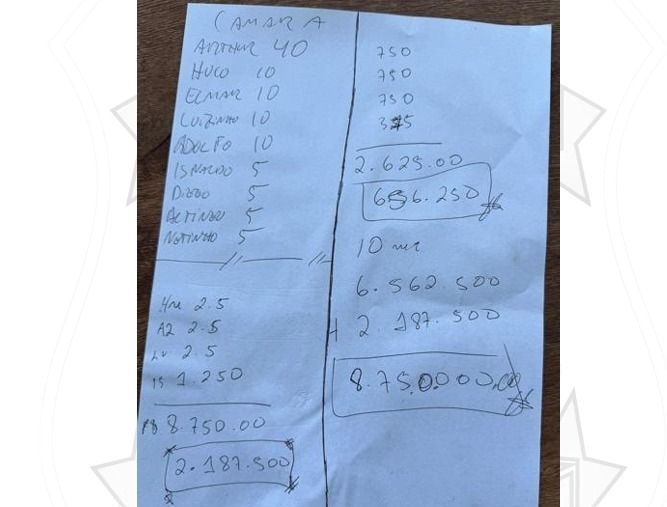 CAMARA
ARTHUR 40
HUGO 10
ELMAR 10
LUIZINHO 10
ADOLFO 10
ISNALDO 5
DIEGO 5
ALTINEU 5
NETINHO 5
2.5
A2 2.5
LU 2.5
IS 1.250
8.750.00
2.187.500
750
750
750
375
2.625.00
656.250
10
6.562.500
+ 2.187.500
8.750.000,00